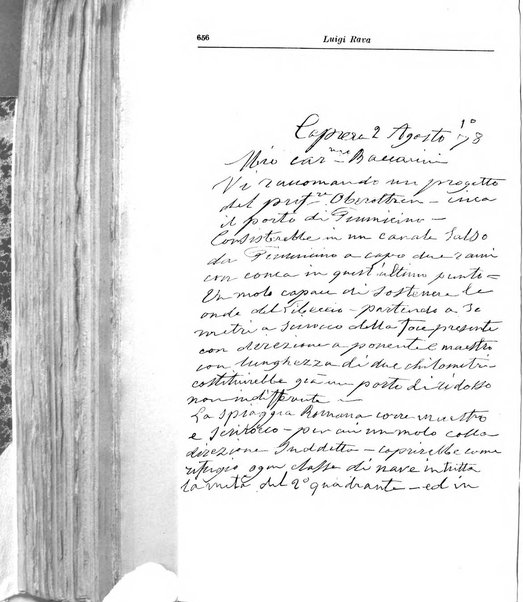 656 Luigi Rava
Caprera 2 Agosto 78
Mio car.mo Baccarini
Vi raccomando un progetto
del prof.re Oberottren — circa
il porto di Fiumicino —
Consisterebbe in un canale Salso
da Fiumicino a capo due rami
con conca in quest'ultimo punto =
Un molo capace di sostenere le
onde del Libeccio — partendo a 50
metri a Scirocco della foce presente
con direzione a ponente e maestro
con lunghezza di due chilometri
costituirebbe già un porto di ridosso
non indifferente —
La Spiaggia Romana corre maestro
e Scirocco — per cui un molo colla
direzione Suddetta — coprirebbe come
rifugio ogni classe di nave in tutta
la metà del 2º quadrante — ed in